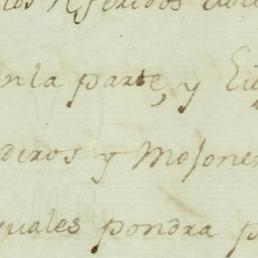 los Referidos
en la parte, y
deros y Mojone
quales pondra p